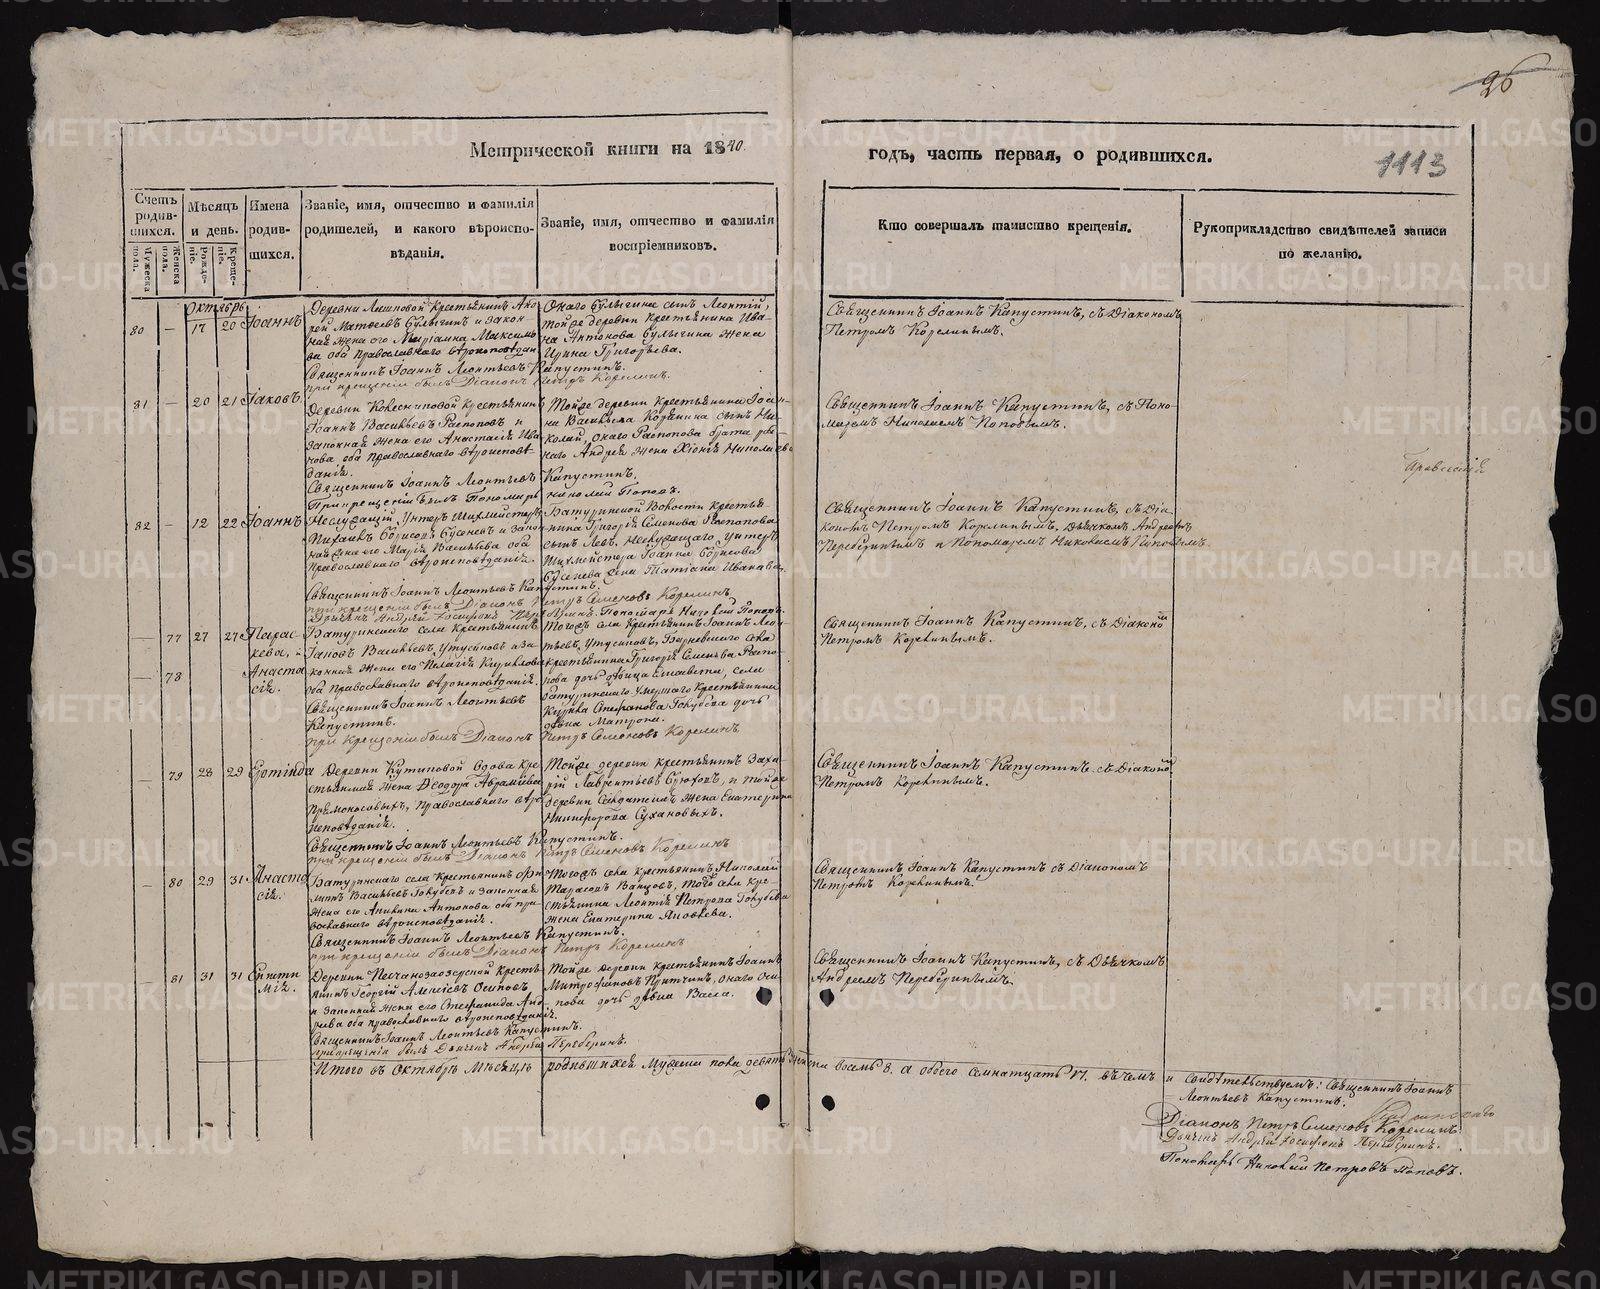 26
Метрической книги на 1840.
годъ, часть первая, о родившихся.
1113
Счетъ родив-шихся.
Мужеска пола.
Женска пола.
Мѣсяцъ и день.
Рожде-ніе.
Креще-ніе.
Имена родив-шихся.
Званіе, имя, отчество и фамилія
родителей, и какого вѣроиспо-
вѣданія.
Званіе, имя, отчество и фамилія
воспріемниковъ.
Кто совершалъ таинство крещенія.
Рукоприкладство свидѣтелей записи
по желанію.
Октябрь
80 — 17 20 Іоаннъ
Деревни крестьянинъ
Матвеевъ Булыгинъ и закон-
ная жена его Максимо
ва оба православнаго вѣроисповѣдан
Священникъ Іоаннъ Леонтьевъ Капустинъ.
при крещеніи былъ Діаконъ Петръ Корелинъ.
Онаго Булыгина сынъ Леонтій,
той же деревни крестьянина Ива-
на Антонова Булыгина жена
Ирина Григорьева.
Священникъ Іоаннъ Капустинъ, съ Діакономъ
Петромъ Корелинымъ.
81 — 20 21 Іаковъ
Деревни крестьянинъ
Іоаннъ Васильевъ Распоповъ и
законная жена его Анастасія Ива
нова оба православнаго вѣроисповѣ-
данія.
Священникъ Іоаннъ Леонтьевъ Капустинъ.
При крещеніи былъ Пономарь Николай Поповъ.
Той же деревни крестьянина Іоан-
на Васильева сынъ Ни-
колай, онаго Распопова брата
Андрея жена Хіонія Николаева
Священникъ Іоаннъ Капустинъ, съ Поно-
маремъ Николаемъ Поповымъ.
82 — 12 22 Іоаннъ
Неслужащій Унтеръ Шихмейстеръ
Михаилъ Борисовъ и закон
ная жена его Марія Васильева оба
православнаго вѣроисповѣданія.
Священникъ Іоаннъ Леонтьевъ Капустинъ.
при крещеніи былъ Діаконъ Петръ Семеновъ Корелинъ
Пономарь Николай Поповъ.
Батуринской Волости крестья-
нина Григорія Семенова Распопова
сынъ Левъ, неслужащаго Унтеръ
Шихмейстера Іоанна Борисова
жена Татіана Иванова.
Священникъ Іоаннъ Капустинъ, съ Діа
кономъ Петромъ Корелинымъ, Дьячкомъ Андреемъ
Переберинымъ и Пономаремъ Николаемъ Поповымъ.
— 77 27 27 Парас-
кева, и
— 78 Анаста
сія.
Батуринскаго села Крестьянинъ
Іаковъ Васильевъ и за
конная жена его Пелагія Кирилова
оба православнаго вѣроисповѣданія.
Священникъ Іоаннъ Леонтьевъ
Капустинъ.
при Крещеніи былъ Діаконъ Петръ Семеновъ Корелинъ
Тогожъ села крестьянинъ Іоаннъ Леон
тьевъ села
крестьянина Григорія Семенова Распо-
пова дочь дѣвица Елисавета, села
Батуринскаго умершаго крестьянина
Кирила Стефанова Голубева дочь
дѣвица Матрона.
Священникъ Іоаннъ Капустинъ, съ Діакономъ
Петромъ Корелинымъ.
— 79 28 29
Деревни Вдова Кре
стьянская жена Ѳеодора Авраміева
Православнаго вѣро
исповѣданія.
Священникъ Іоаннъ Леонтьевъ Капустинъ.
при крещеніи былъ Діаконъ Петръ Семеновъ Корелинъ
Той же деревни крестьянинъ Заха-
рій Лаврентьевъ и той же
деревни Солдатскій жена Екатерина
Никифорова Сухановыхъ.
Священникъ Іоаннъ Капустинъ съ Діакономъ
Петромъ Корелинымъ.
— 80 29 31 Анаста
сія.
Батуринскаго села крестьянинъ
Васильевъ Голубевъ и законная
жена его Антонова оба пра-
вославнаго вѣроисповѣданія.
Священникъ Іоаннъ Леонтьевъ Капустинъ.
при крещеніи былъ Діаконъ Петръ Корелинъ
Тогожъ села крестьянинъ Николай
Тарасовъ того села кре-
стьянина Леонтія Петрова Голубева
жена Екатерина Яковлева.
Священникъ Іоаннъ Капустинъ съ Діакономъ
Петромъ Корелинымъ.
— 81 31 31
Деревни Песчаноозерской Кресть-
янинъ Георгій Алексіевъ Осиповъ
и законная жена его Стефанида Анд-
реева оба православнаго вѣроисповѣданія.
Священникъ Іоаннъ Леонтьевъ Капустинъ.
при крещеніи былъ Дьячекъ Андрей Переберинъ.
Той же деревни крестьянинъ Іоаннъ
Митрофановъ онаго Оси-
пова дочь дѣвица Васса.
Священникъ Іоаннъ Капустинъ, съ Дьячкомъ
Андреемъ Переберинымъ.
Итого въ Октябрѣ Мѣсяцѣ родившихся Мужеска пола девять женска восемь 8. а обоего семнатцать 17. въ чемъ и свидѣтельствуемъ: Священникъ Іоаннъ
Леонтьевъ Капустинъ.
Діаконъ Петръ Семеновъ Корелинъ
Дьячекъ Андрей Переберинъ.
Пономарь Николай Петровъ Поповъ.
METRIKI.GASO-URAL.RU